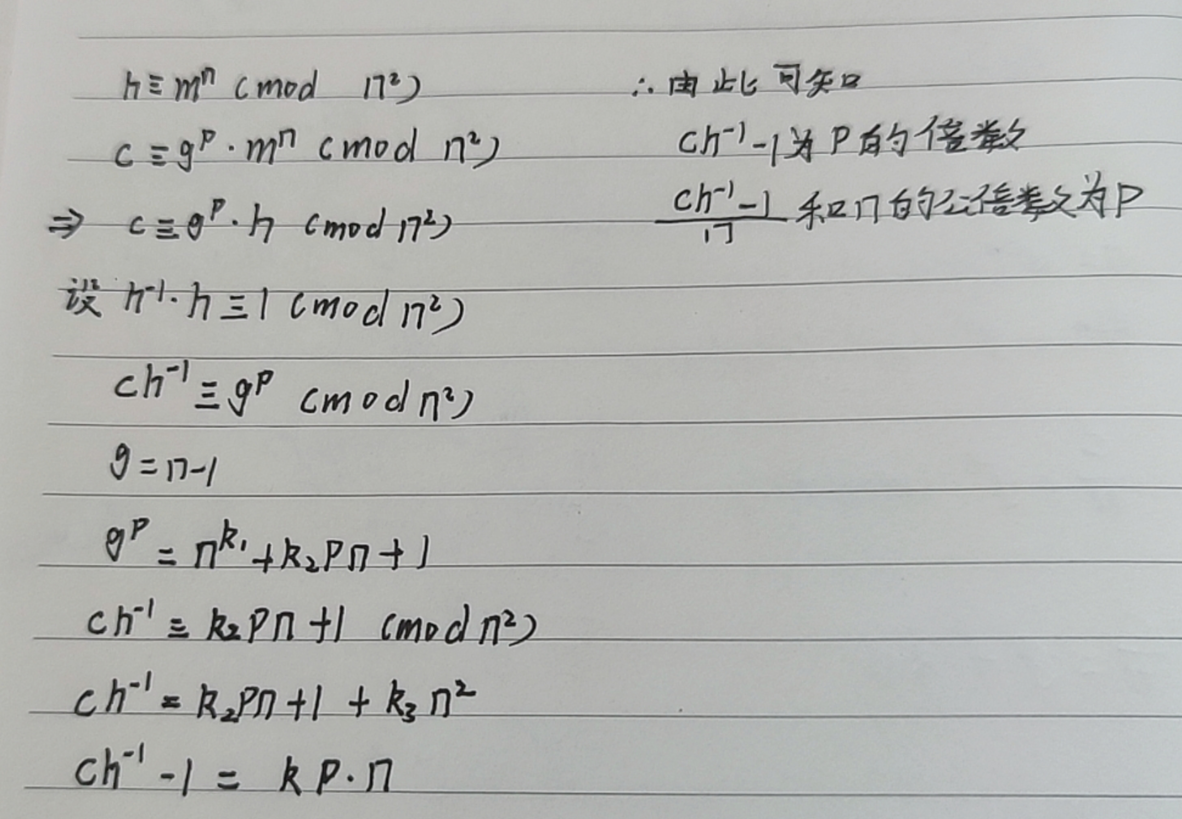 h≡mⁿ (mod n²)
c≡gᵖ·mⁿ (mod n²)
⇒ c≡gᵖ·h (mod n²)
设 h⁻¹·h≡1 (mod n²)
ch⁻¹≡gᵖ (mod n²)
g=n-1
gᵖ=n^k₁+k₂pn+1
ch⁻¹≡k₂pn+1 (mod n²)
ch⁻¹=k₂pn+1+k₃n²
ch⁻¹-1=kp·n
∴由此可知
ch⁻¹-1为P的倍数
(ch⁻¹-1)/n 和n的公倍数为P